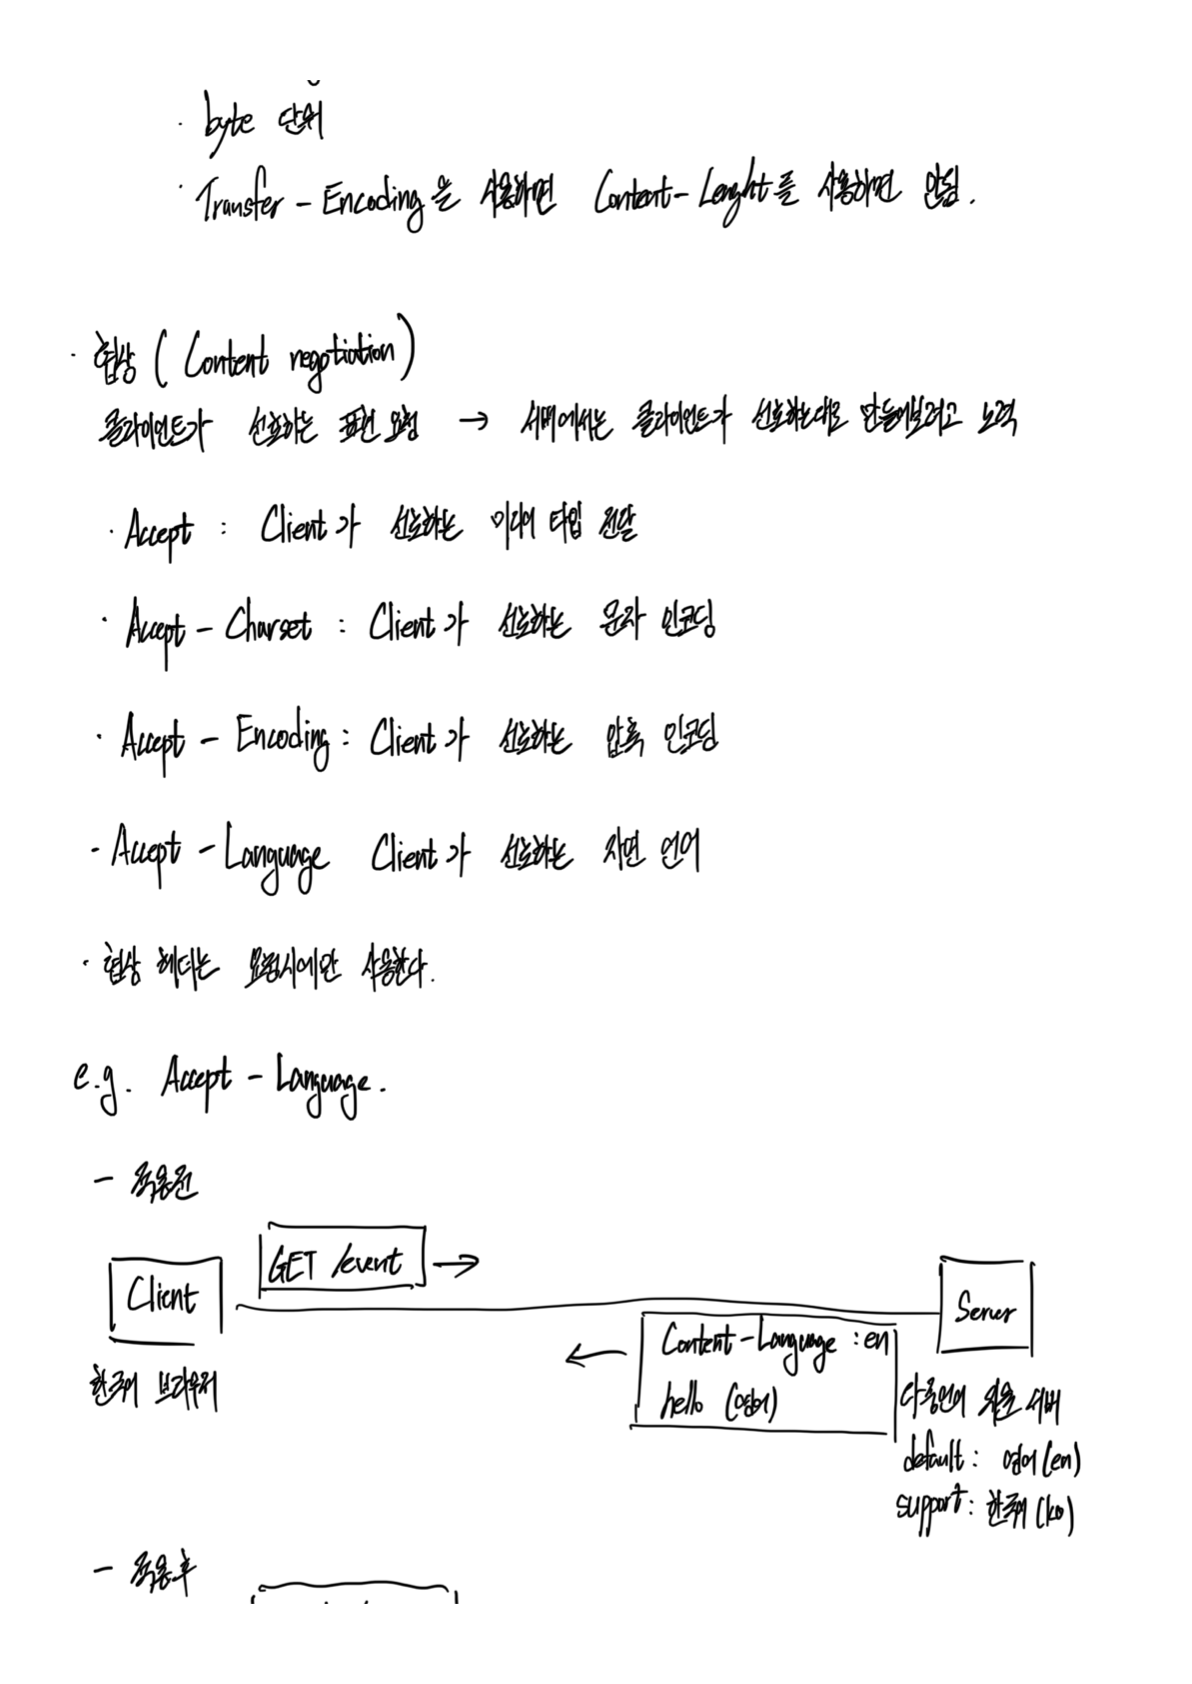 · byte 단위
· Transfer - Encoding을 사용하면 Content - Lenght를 사용하면 안됨.
· 협상 (Content negotiation)
클라이언트가 선호하는 표현 요청 → 서버에서는 클라이언트가 선호하는대로 만들어보려고 노력
· Accept : Client가 선호하는 미디어 타입 전달
· Accept - Charset : Client가 선호하는 문자 인코딩
· Accept - Encoding : Client가 선호하는 압축 인코딩
- Accept - Language Client가 선호하는 자연 언어
· 협상 헤더는 요청시에만 사용한다.
e.g. Accept - Language.
- 적용전
GET /event →
Client
Server
← Content - Language : en
hello (영어)
한국어 브라우저
다중언어 지원 서버
default : 영어(en)
support : 한국어(ko)
- 적용후